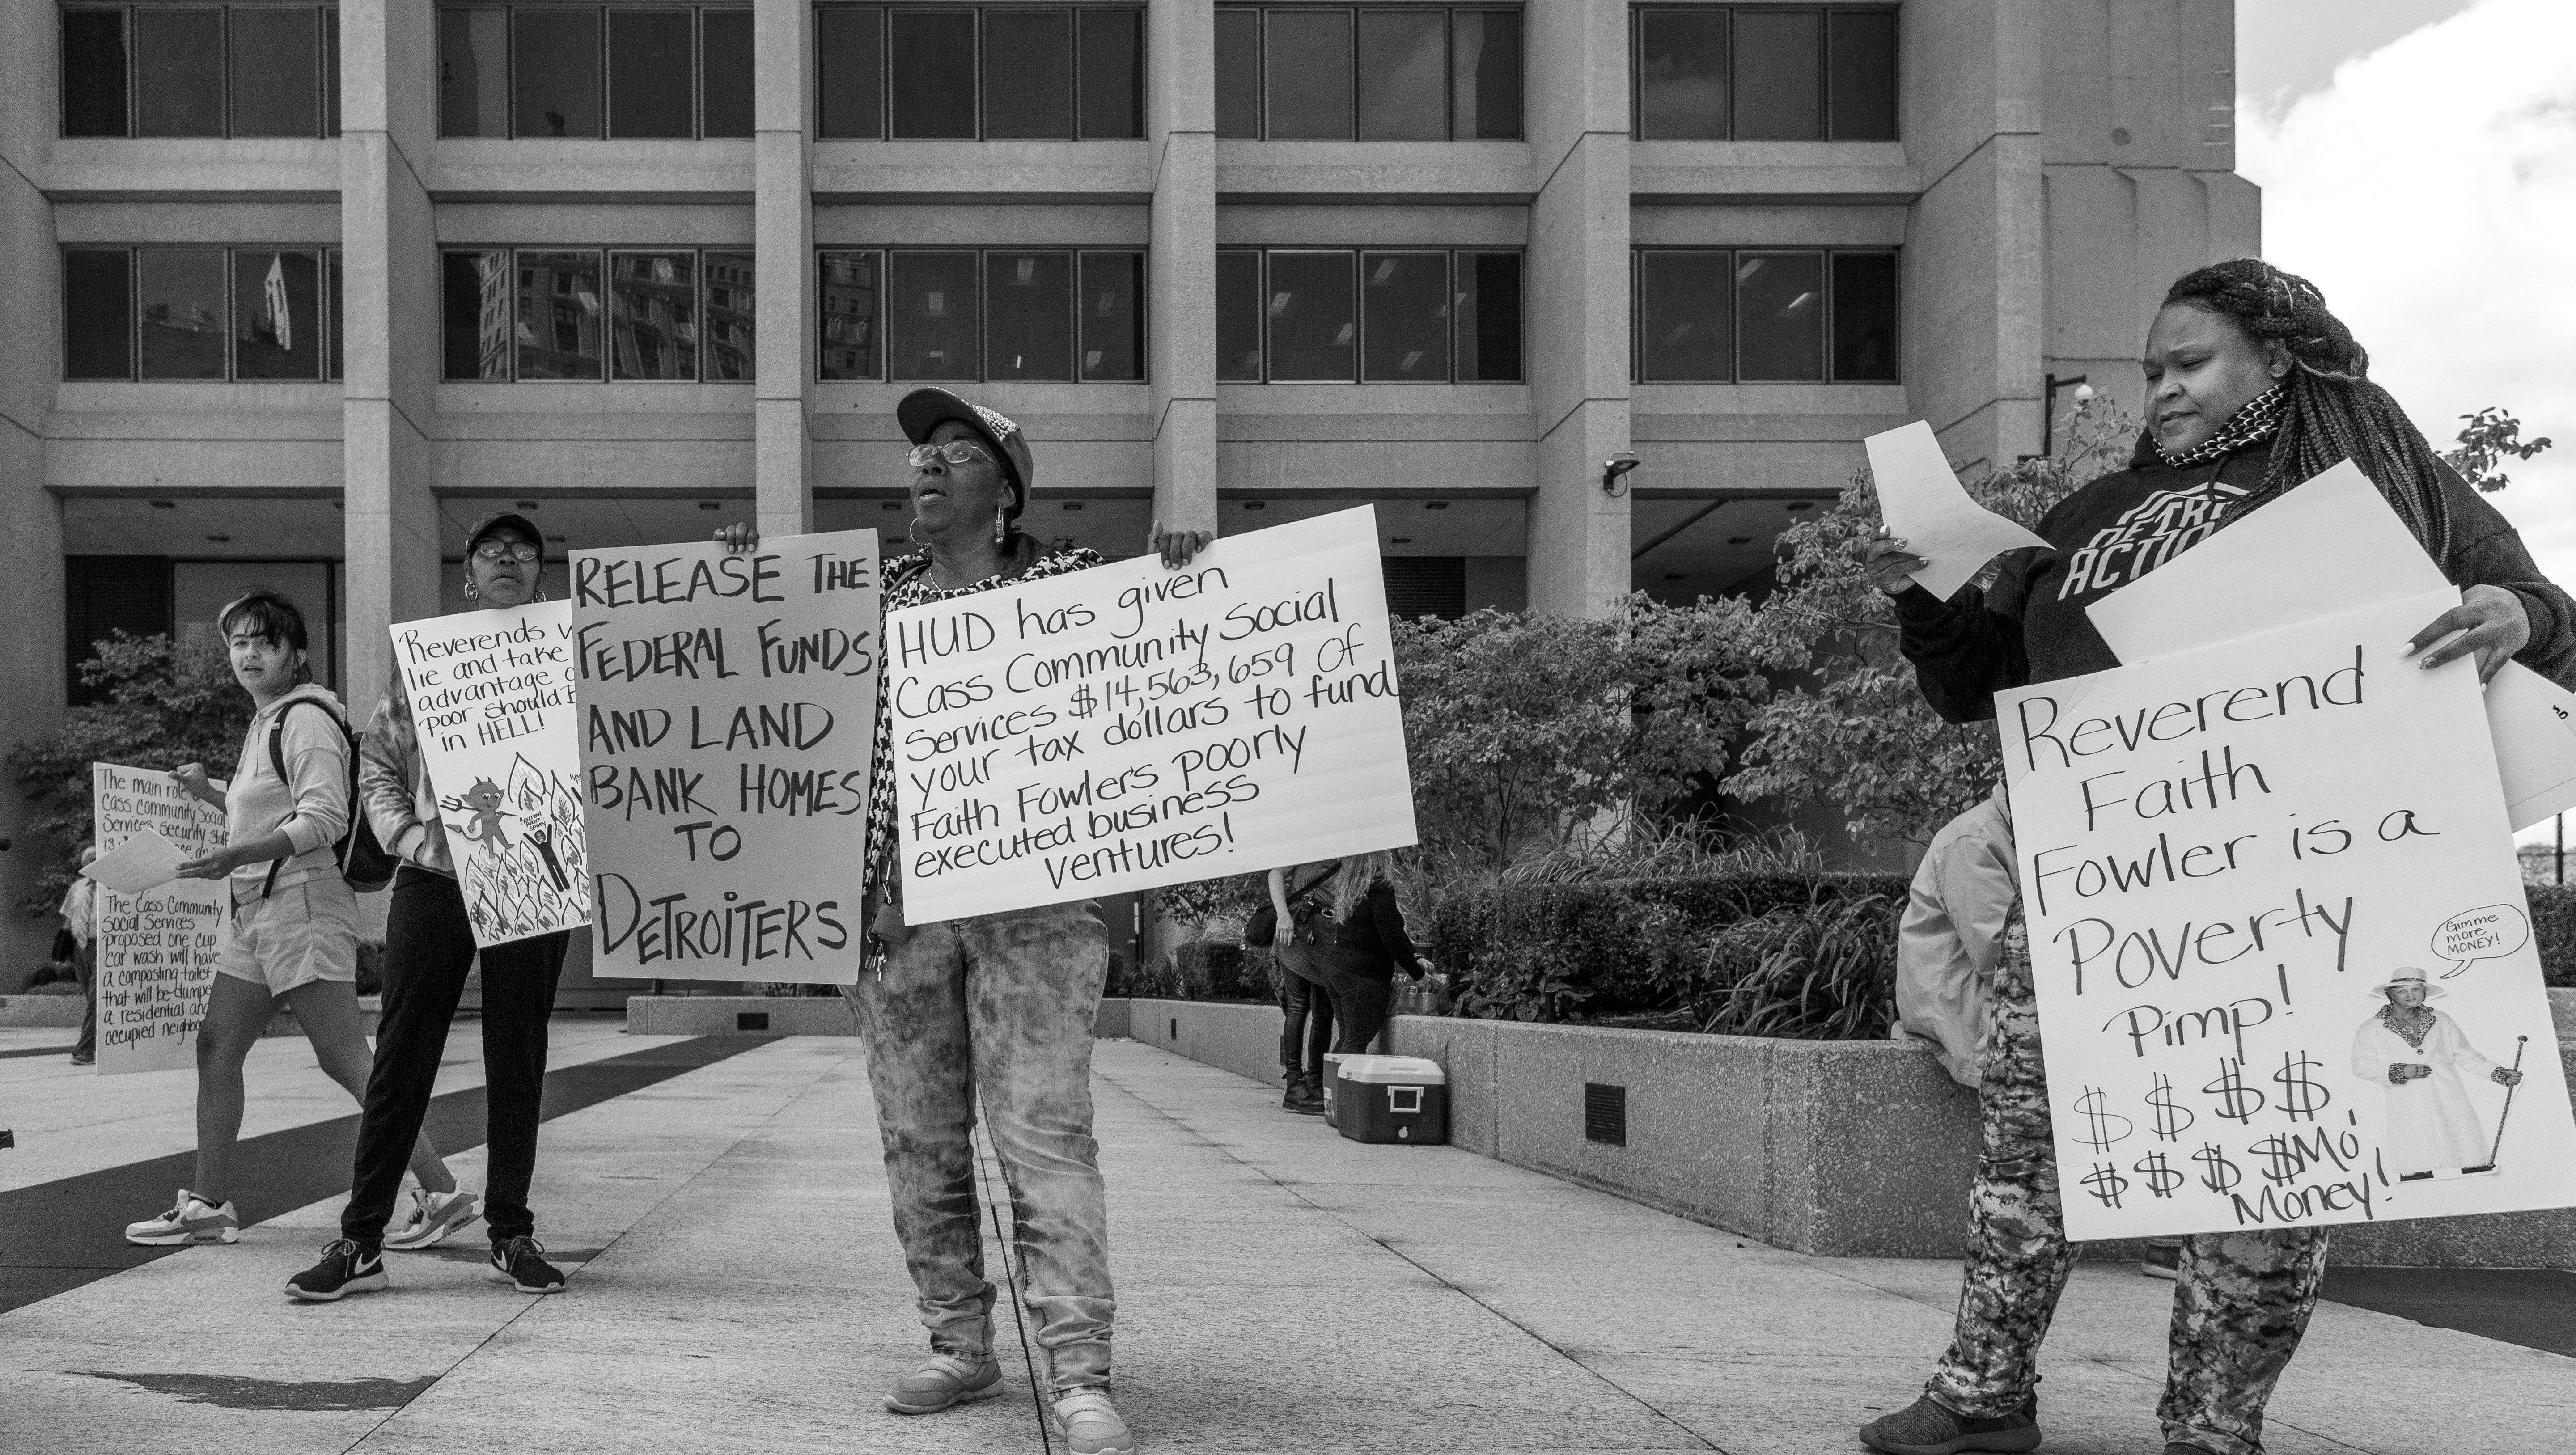 The main role
Cass Community Social
Services security staff
is
The Cass Community
Social Services
proposed one cup
car wash will have
a composting toilet
that will be dumpe
a residential and
occupied neighbo
Reverends w
lie and take
advantage o
poor should
in HELL!
Reverend
RELEASE THE
FEDERAL FUNDS
AND LAND
BANK HOMES
TO
DETROITERS
HUD has given
Cass Community Social
Services $14,563,659 of
your tax dollars to fund
Faith Fowler's poorly
executed business
ventures!
DETRO
ACTIO
Reverend
Faith
Fowler is a
Poverty
Pimp!
Gimme
more
MONEY!
$ $ $ $
$ $ $ $ Mo'
Money!